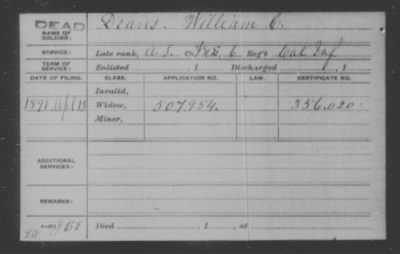 DEAD
NAME OF SOLDIER:
Deans, William C.
SERVICE:
Late rank, Co. Reg't Inf
TERM OF SERVICE:
Enlisted , 1 Discharged , 1
DATE OF FILING. CLASS. APPLICATION NO. LAW. CERTIFICATE NO.
Invalid,
1891 Apl 13 Widow, 507954. 356.020.
Minor,
ADDITIONAL SERVICES:
REMARKS:
Died , 1 , at